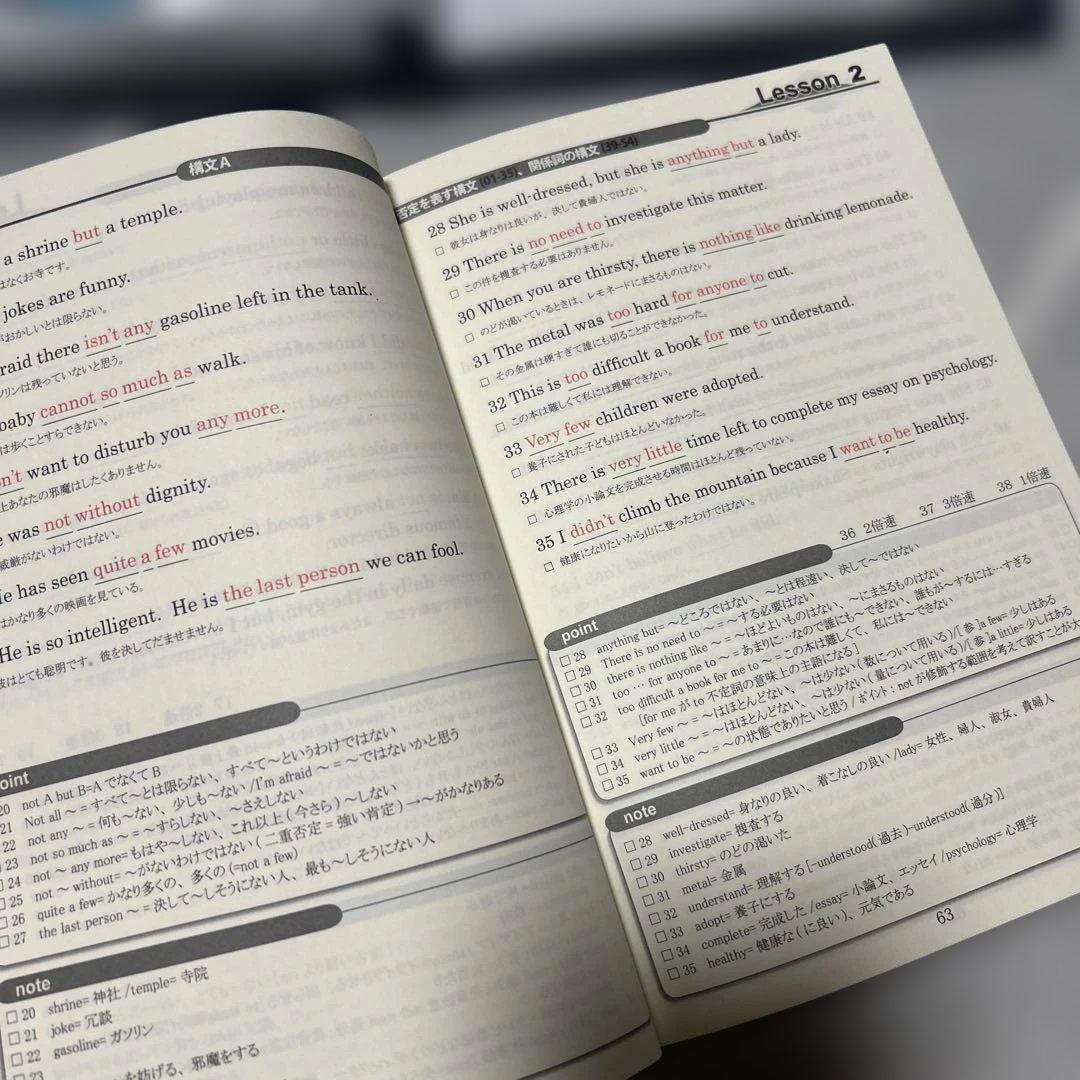 構文A
a shrine but a temple.
はなくお寺です。
jokes are funny.
がおかしいとは限らない。
raid there isn't any gasoline left in the tank.
ソリンは残っていないと思う。
baby cannot so much as walk.
は歩くことすらできない。
on't want to disturb you any more.
上あなたの邪魔はしたくありません。
e was not without dignity.
威厳がないわけではない。
He has seen quite a few movies.
はかなり多くの映画を見ている。
He is so intelligent. He is the last person we can fool.
彼はとても聡明です。彼を決してだませません。
oint
20 not A but B=AでなくてB
21 Not all ~ = すべて~とは限らない、すべて~というわけではない
22 not any ~ = 何も~ない、少しも~ない/I'm afraid ~ = ~ではないかと思う
23 not so much as ~ = ~すらしない、~さえしない
24 not ~ any more= もはや~しない、これ以上(今さら)~しない
25 not ~ without= ~がないわけではない(二重否定=強い肯定)→~がかなりある
26 quite a few= かなり多くの、多くの(=not a few)
27 the last person ~ = 決して~しそうにない人、最も~しそうにない人
note
20 shrine= 神社 /temple= 寺院
21 joke= 冗談
22 gasoline= ガソリン
23
を妨げる、邪魔をする
Lesson 2
否定を表す構文(01-35)、関係詞の構文(39-54)
28 She is well-dressed, but she is anything but a lady.
彼女は身なりは良いが、決して貴婦人ではない。
29 There is no need to investigate this matter.
この件を捜査する必要はありません。
30 When you are thirsty, there is nothing like drinking lemonade.
のどが渇いているときは、レモネードにまさるものはない。
31 The metal was too hard for anyone to cut.
その金属は硬すぎて誰にも切ることができなかった。
32 This is too difficult a book for me to understand.
この本は難しくて私には理解できない。
33 Very few children were adopted.
養子にされた子どもはほとんどいなかった。
34 There is very little time left to complete my essay on psychology.
心理学の小論文を完成させる時間はほとんど残っていない。
35 I didn't climb the mountain because I want to be healthy.
健康になりたいから山に登ったわけではない。
36 2倍速 37 3倍速 38 1倍速
point
28 anything but= ~どころではない、~とは程遠い、決して~ではない
29 There is no need to ~ = ~する必要はない
30 there is nothing like ~ = ~ほどよいものはない、~にまさるものはない
31 too … for anyone to ~ = あまりに…なので誰にも~できない、誰もが~するには…すぎる
32 too difficult a book for me to ~ = この本は難しくて、私には~できない
[for me が to 不定詞の意味上の主語になる]
33 Very few ~ = ~はほとんどない、~は少ない(数について用いる)/[参]a few= 少しはある
34 very little ~ = ~はほとんどない、~は少ない(量について用いる)/[参]a little= 少しはある
35 want to be ~ = ~の状態でありたいと思う / ポイント:not が修飾する範囲を考えて訳すことが大
note
28 well-dressed= 身なりの良い、着こなしの良い /lady= 女性、婦人、淑女、貴婦人
29 investigate= 捜査する
30 thirsty= のどの渇いた
31 metal= 金属
32 understand= 理解する[–understood(過去)–understood(過分)]
33 adopt= 養子にする
34 complete= 完成した /essay= 小論文、エッセイ /psychology= 心理学
35 healthy= 健康な(に良い)、元気である
63